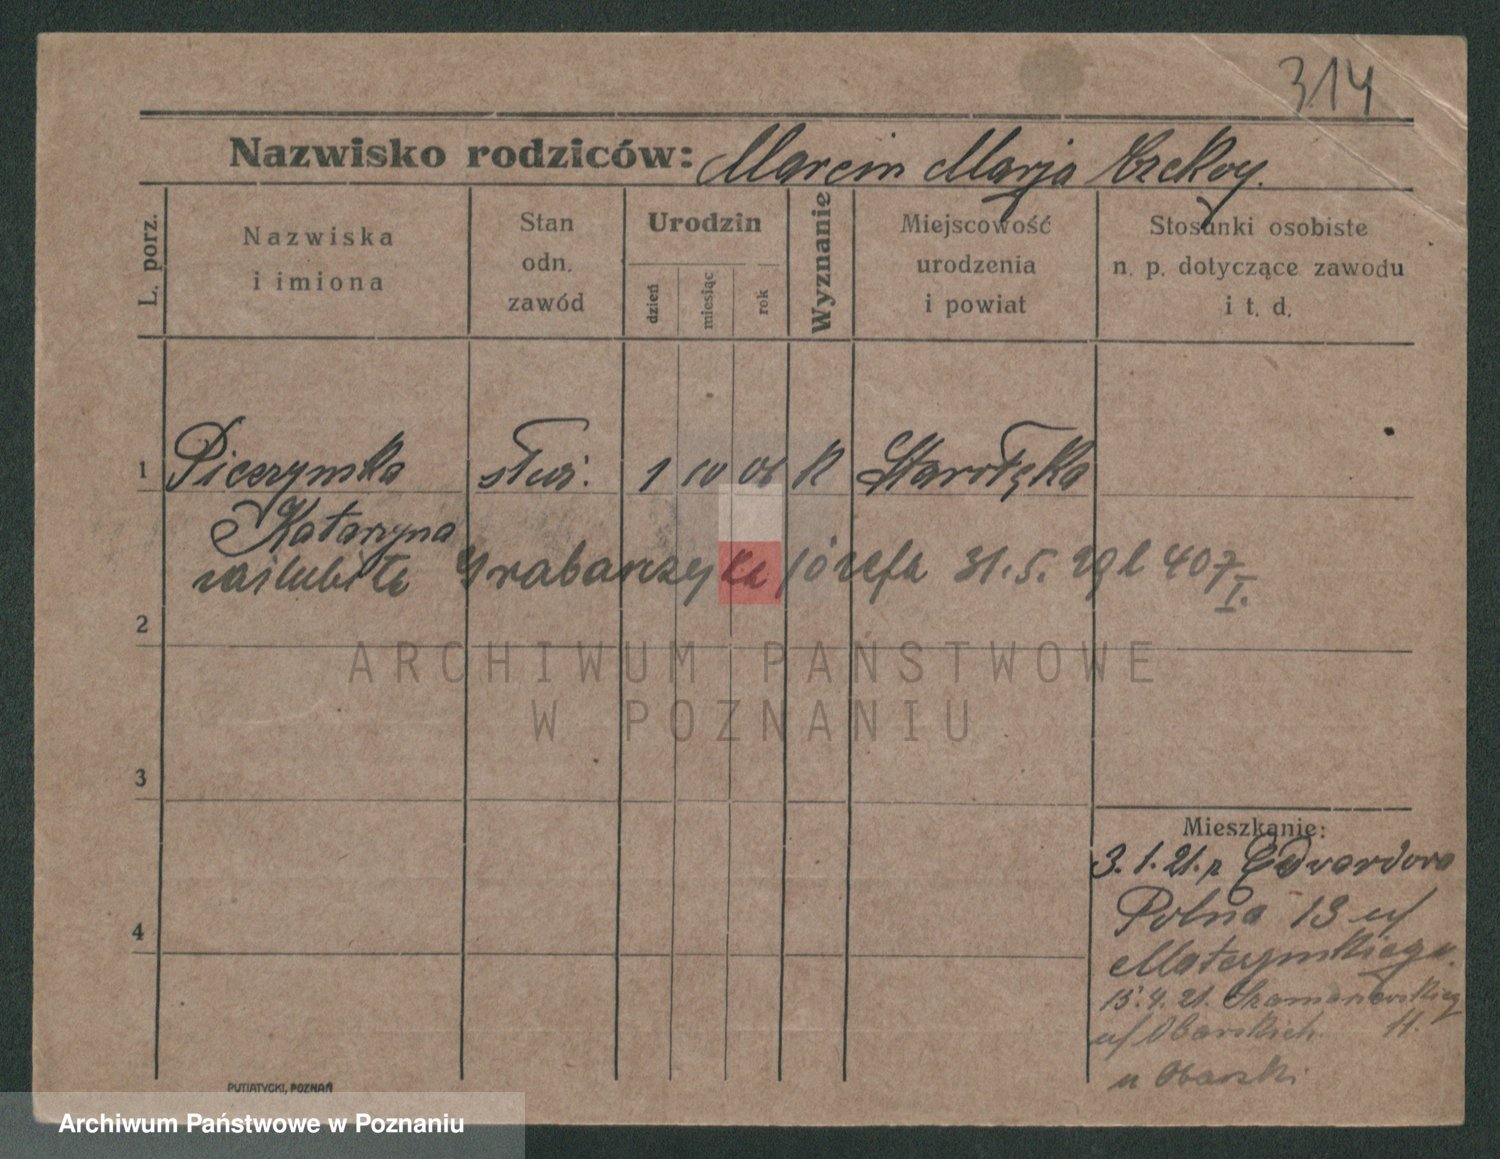 314
Nazwisko rodziców: Marcin Marja
L. porz.
Nazwiska
i imiona
Stan
odn.
zawód
Urodzin
dzień
miesiąc
rok
Wyznanie
Miejscowość
urodzenia
i powiat
Stosunki osobiste
n. p. dotyczące zawodu
i t. d.
1 Pieczynska służ. 1 10 06 K Starołęka
Katarzyna
zaślubiła Grabarzyka Józefa 31. 5. 29 407
I.
2
ARCHIWUM PAŃSTWOWE
W POZNANIU
3
Mieszkanie:
3. 1. 21. z Edwardowa
4
Polna 13 u/
15. 4. 21. 11.
PUTIATYCKI, POZNAŃ
Archiwum Państwowe w Poznaniu